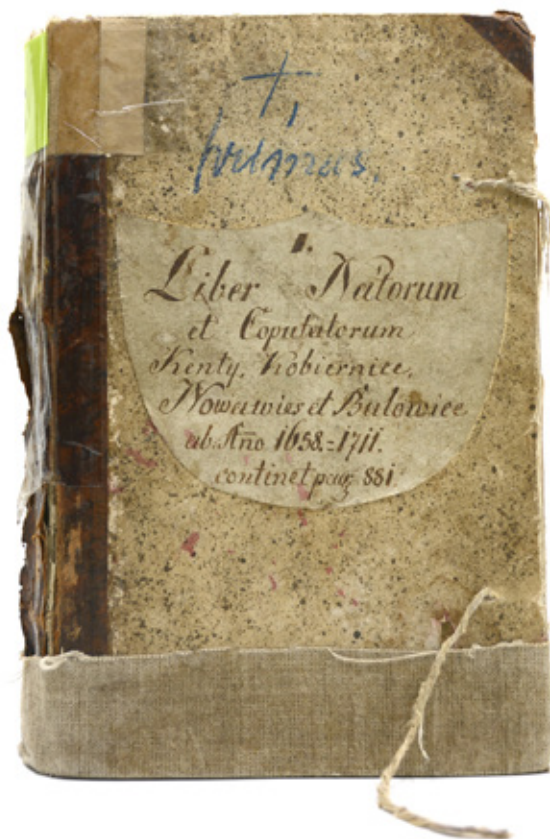 I.
Liber Natorum
et Copulatorum
Kenty, Kobiernice,
Nowawies et Bulowice
ab Año 1658.=1711.
continet pag 881.